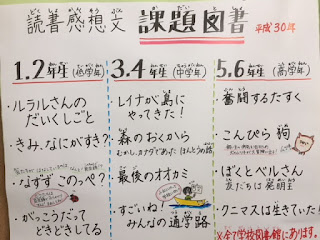 読書感想文 課題図書 平成30年
1.2年生(低学年)
・ルラルさんの
だいくしごと
・きみ、なにがすき？
・なずず このっぺ？
・がっこうだって
どきどきしてる
3.4年生(中学年)
・レイナが島に
やってきた！
・森のおくから
むかし、カナダであった ほんとうの話
・最後のオオカミ
・すごいね！
みんなの通学路
5.6年生(高学年)
・奮闘するたすく
・こんぴら狗
・ぼくとベルさん
友だちは発明王
・クニマスは生きていた！
※全て学校図書館にあります。